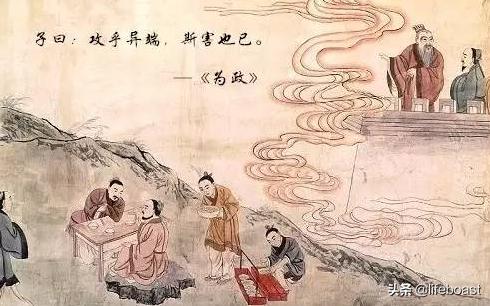 子曰：攻乎异端，斯害也已。
—《为政》
头条 @lifeboast